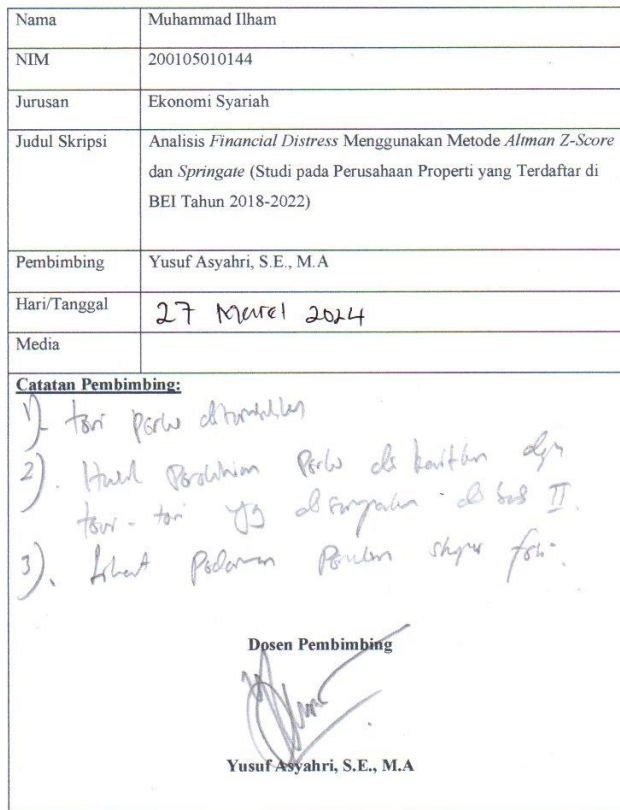 Nama Muhammad Ilham
NIM 200105010144
Jurusan Ekonomi Syariah
Judul Skripsi Analisis Financial Distress Menggunakan Metode Altman Z-Score
dan Springate (Studi pada Perusahaan Properti yang Terdaftar di
BEI Tahun 2018-2022)
Pembimbing Yusuf Asyahri, S.E., M.A
Hari/Tanggal 27 Maret 2024
Media
Catatan Pembimbing:
1) teori perlu
2). Hasil Penelitian perlu di kaitkan dgn
teori-teori yg di bab II.
3). Lihat Pedoman
Dosen Pembimbing
Yusuf Asyahri, S.E., M.A